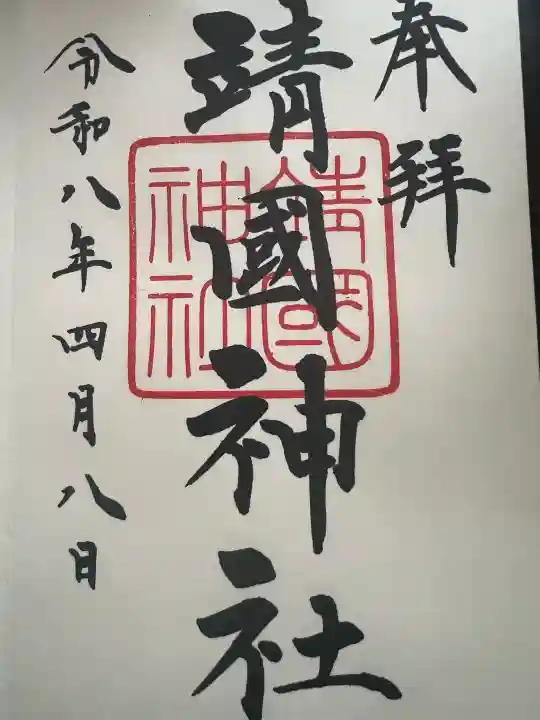 奉拝
靖國神社
靖國神社
令和八年四月八日